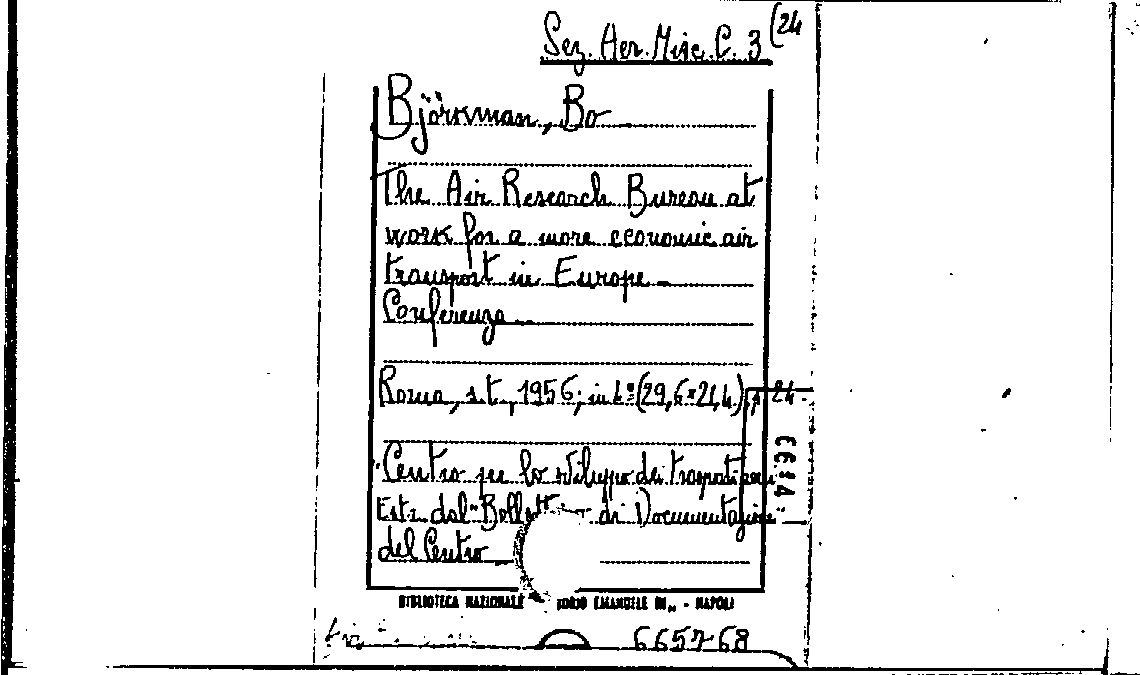 Sez. Aer. Misc. C. 3 (24
Björkman, Bo
The Air Research Bureau at
work for a more economic air
transport in Europe.
Conferenza.
Roma, s.t., 1956; in 4º (29,6×21,4) p. 24.
"Centro per lo sviluppo dei trasporti aerei
Estr. dal "Bollettino di Documentazione"
del Centro
6614
BIBLIOTECA NAZIONALE - NAPOLI
6657-68